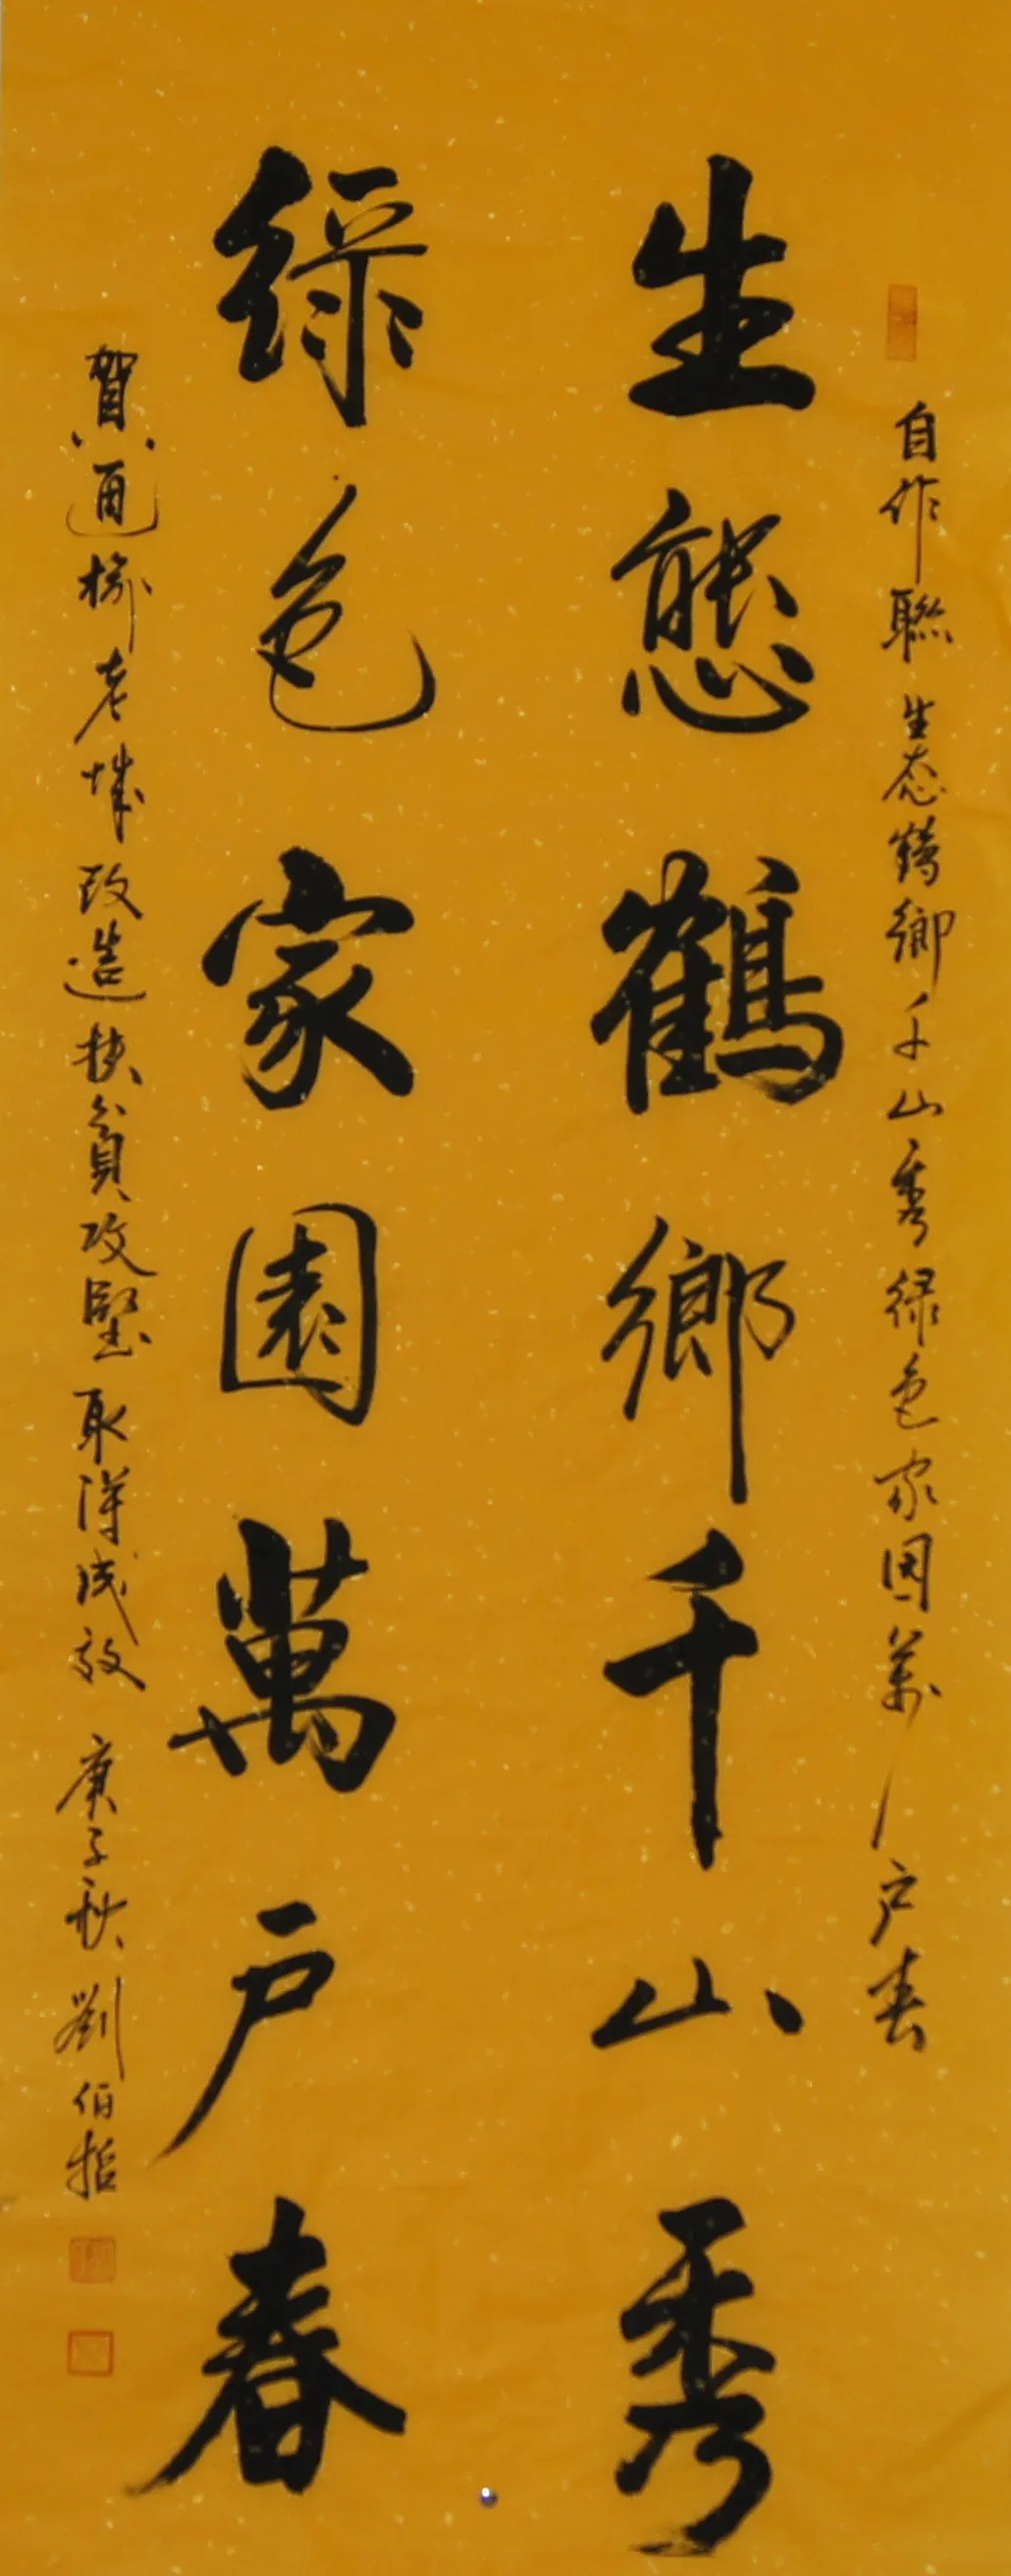 自作聯生态鶴鄉千山秀绿色家园萬户春
生態鶴鄉千山秀
綠色家園萬户春
賀通榆老城改造扶貧攻堅取得成效 庚子秋 劉伯哲